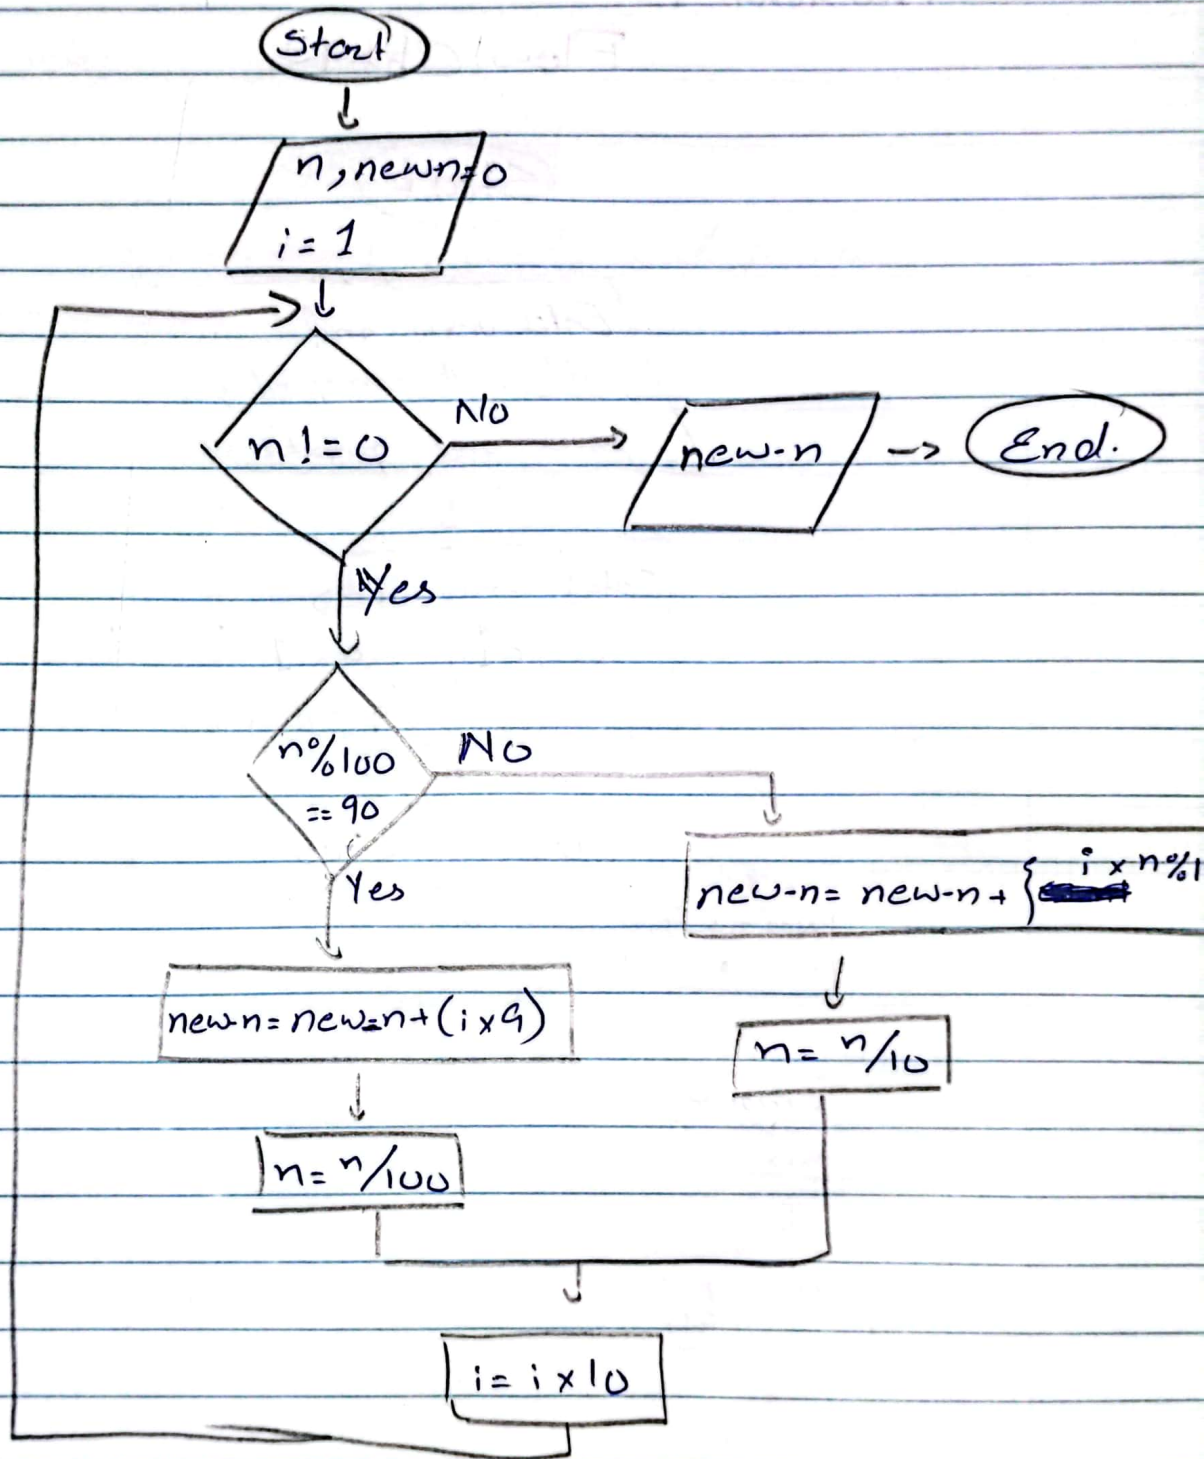 Start
n, new-n=0
i = 1
n != 0
No
new-n
End.
Yes
n%100
== 90
No
Yes
new-n = new-n + { i x n%1
new-n = new-n + (i x 9)
n = n/10
n = n/100
i = i x 10